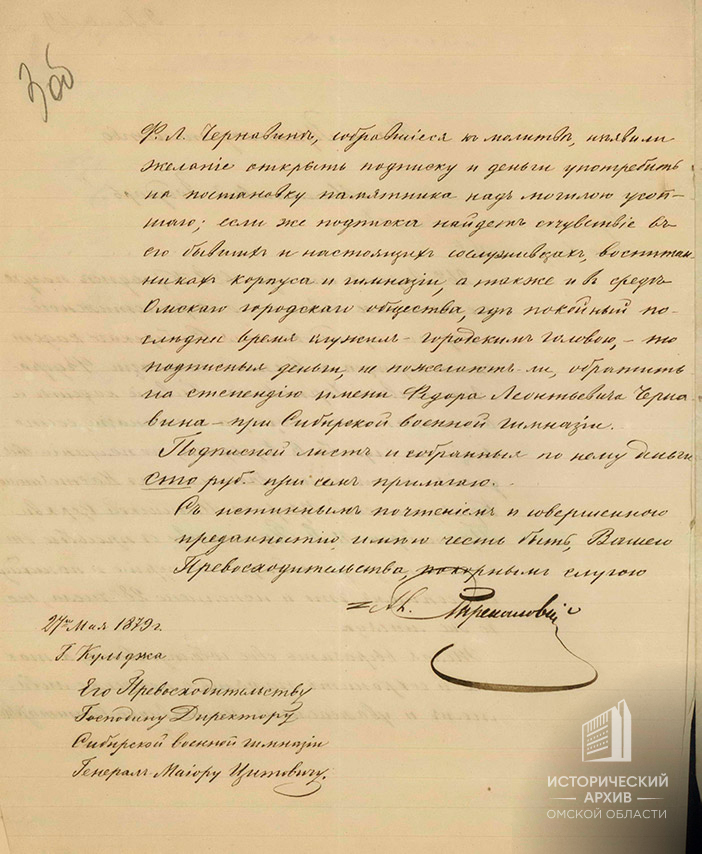 306
Ф. Л. Чернавинѣ, собравшіеся къ молитвѣ, изъявили
желаніе открыть подписку и деньги употребить
на постановку памятника надъ могилою усоп-
шаго; если же подписка найдетъ сочувствіе въ
его бывшихъ и настоящихъ сослуживцахъ, воспитан-
никахъ корпуса и гимназіи, а также и въ средѣ
Омскаго городскаго общества, гдѣ покойный по-
слѣднее время служилъ - городскимъ головою, - то
подписныя деньги, не пожелаютъ-ли, обратить
на степендію имени Ѳедора Леонтьевича Черна-
вина - при Сибирской военной гимназіи.
Подписной листъ и собранныя по нему деньги
сто руб. при семъ прилагаю.
Съ истиннымъ почтеніемъ и совершенною
преданностію имѣю честь быть, Вашего
Превосходительства, покорнымъ слугою
27го Мая 1879 г.
Г. Кульджа
Его Превосходительству
Господину Директору
Сибирской военной гимназіи
Генералъ Маіору Цитовичу.
ИСТОРИЧЕСКИЙ
АРХИВ
ОМСКОЙ ОБЛАСТИ